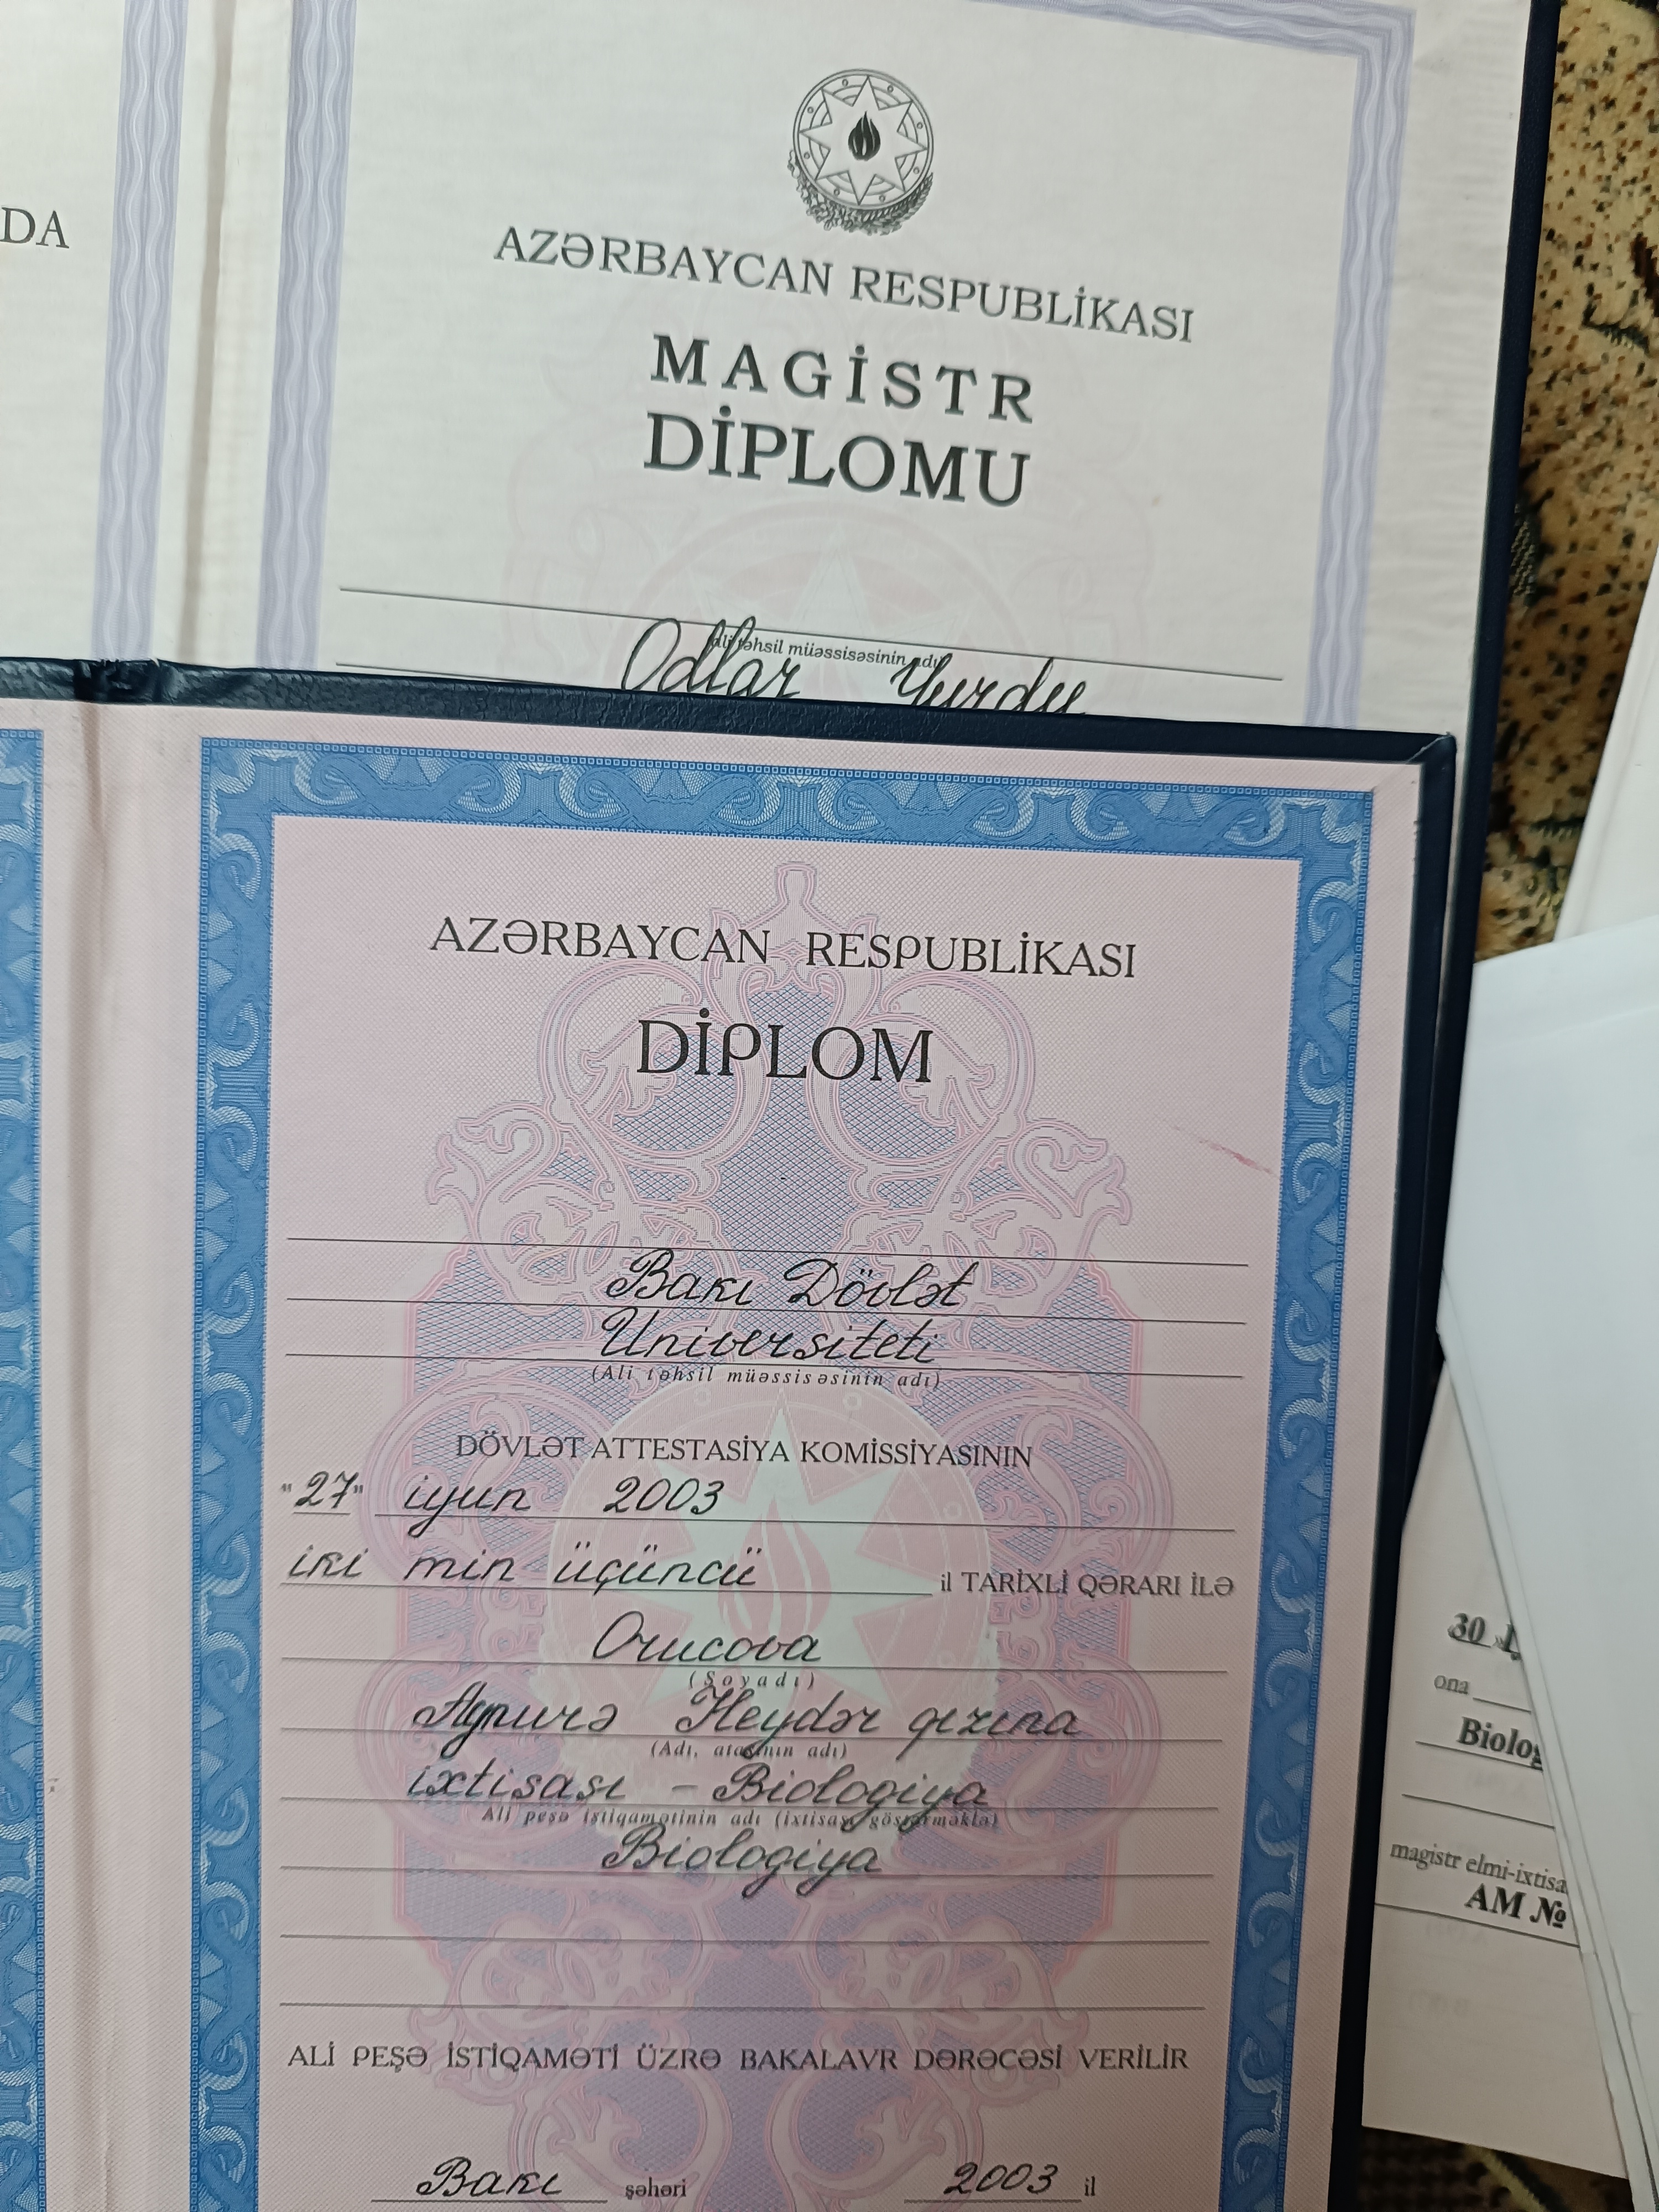 DA
AZƏRBAYCAN RESPUBLİKASI
MAGİSTR
DİPLOMU
ali təhsil müəssisəsinin adı
Odlar Yurdu
AZƏRBAYCAN RESPUBLİKASI
DİPLOM
Bakı Dövlət
Universiteti
(Ali təhsil müəssisəsinin adı)
DÖVLƏT ATTESTASİYA KOMİSSİYASININ
"27" iyun 2003
iki min üçüncü il TARİXLİ QƏRARI İLƏ
Orucova
(Soyadı)
Aynurə Heydər qızına
(Adı, atasının adı)
ixtisası - Biologiya
Ali peşə istiqamətinin adı (ixtisası göstərməklə)
Biologiya
ALİ PEŞƏ İSTİQAMƏTİ ÜZRƏ BAKALAVR DƏRƏCƏSİ VERİLİR
Bakı şəhəri 2003 il
30
ona
Biolog
magistr elmi-ixtisa
AM №